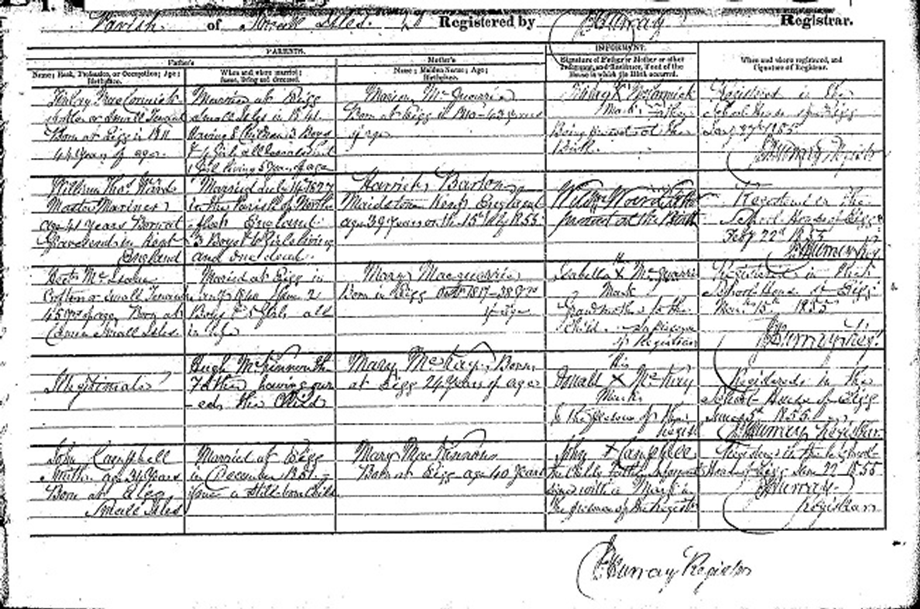 Parish of Small Isles. Registered by Murray Registrar.
PARENTS.
Father's
Mother's
INFORMANT.
Name; Rank, Profession, or Occupation; Age; Birthplace.
When and where married; Issue, living and deceased.
Name; Maiden Name; Age; Birthplace.
Signature of Father or Mother or other Informant, and Residence, if out of the House in which the Birth occurred.
When and where registered, and Signature of Registrar.
Crofter or Small Tenant
Born at Eigg in 1811
44 Years of age
Married at Eigg
Small Isles in 1841
1 Girl living 5 Years of age
Marion McQuarrie
Born at Eigg in 1810 - 43 years
of age
Mark. Father
Being present at the
Birth.
Registered in the
School House of Eigg
1855
Murray Registr
William Thos. Ward
Master Mariner
age 41 Years Born at
Gravesend in Kent
England
Married July 14 1827
in the Parish of North
fleet England
3 Boys & 6 Girls living
and one dead.
Harriet Barton
Maidstone Kent England
age 39 Years on the 15th July 1855
present at the Birth
Registered in the
School House of Eigg
Feby 22d 1855
Murray Reg
Crofter or Small Tenant
45 Years of age Born at
Canna Small Isles
Married at Eigg in
1840 Have 2
Boys & 5 Girls all
in life
Mary Macquarrie
Born in Eigg 1817 - 38 Yrs
of age
Isabella X McQuarrie
Mark
Grandmother to the
Child. in presence
of Registrar
Registered in the
School House of Eigg
March 15th 1855
Murray Reg.
Illegitimate
Hugh McKinnon the
Father having own
ed the Child
Mary McKay, Born
at Eigg 24 Years of age
His
Donald X McKay
Mark
In the presence of the
Regist
Registered in the
School House of Eigg
June 5th 1855
Murray Registrar
John Campbell
age 34 Years
Born at Eigg
Small Isles
Married at Eigg
in December 1851
a Still born Child
Mary MacKinnon
Born at Eigg age 40 Years
John X Campbell
the Child's Father
with a Mark in
the presence of the Registr
Registered in the School
House of Eigg June 22 1855
Murray
Registrar
Murray Registrar